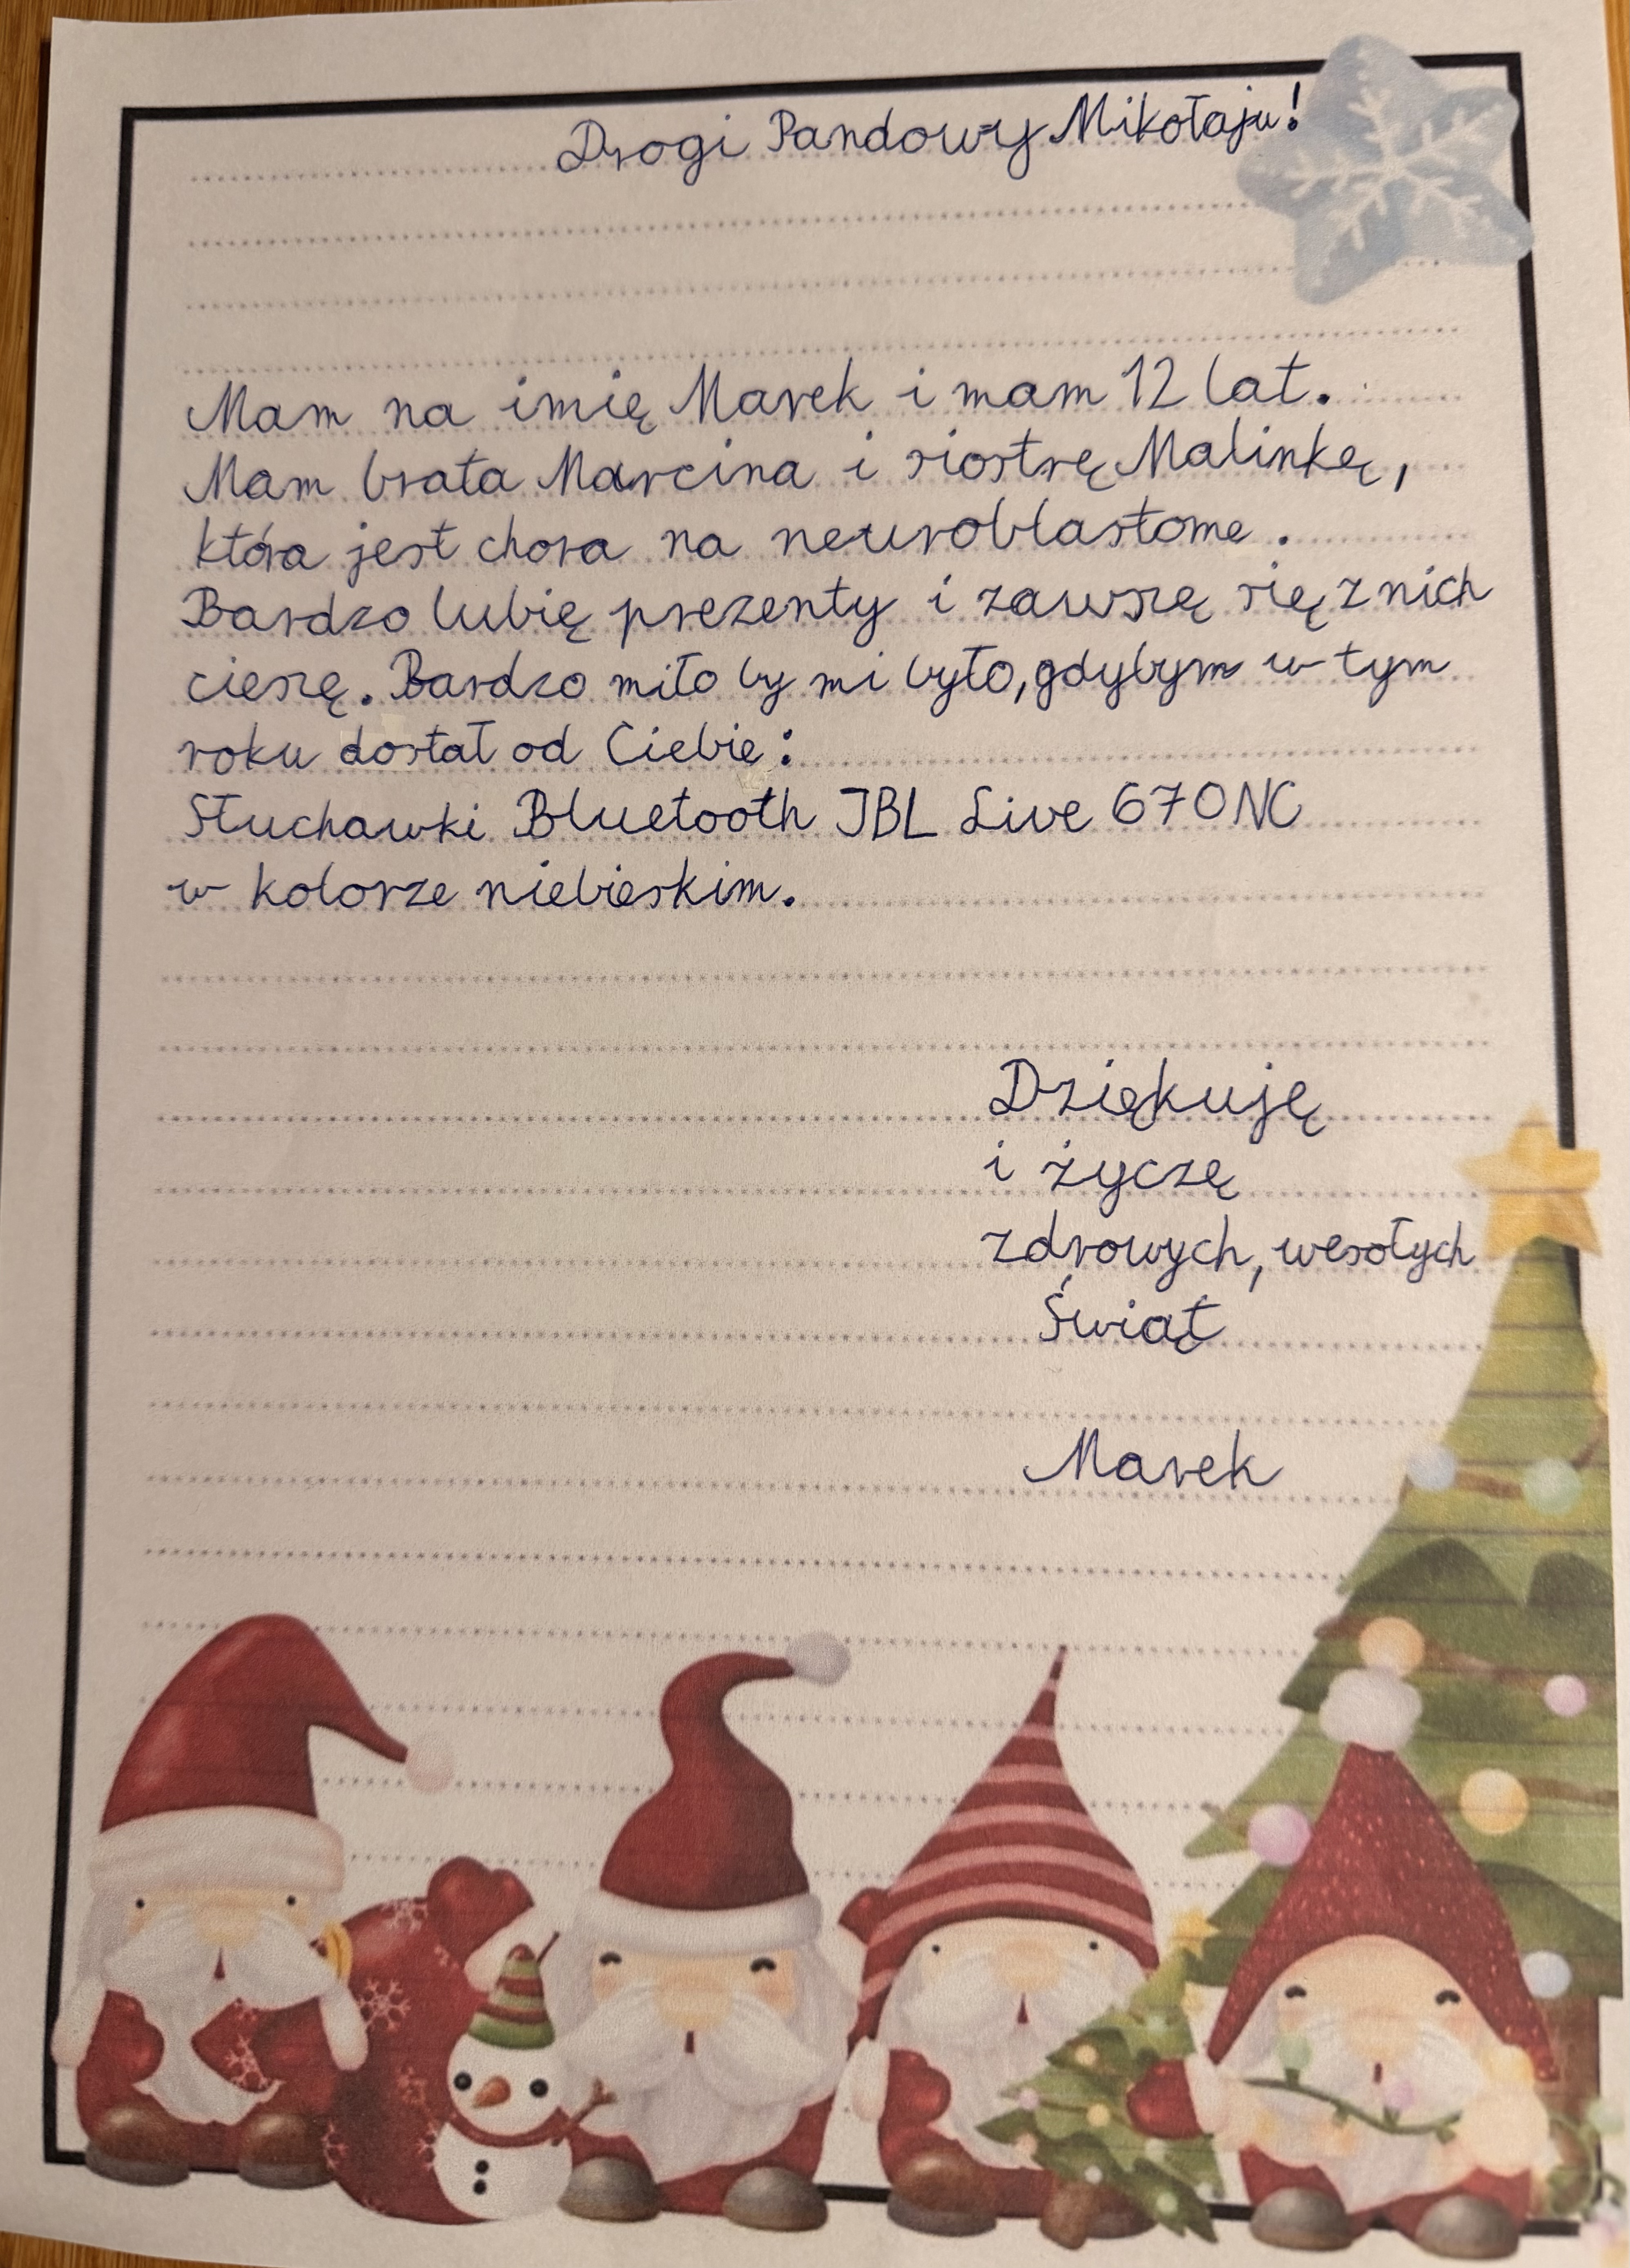 Drogi Pandowy Mikołaju!
Mam na imię Marek i mam 12 lat.
Mam brata Marcina i siostrę Malinkę,
która jest chora na neuroblastome.
Bardzo lubię prezenty i zawszę się z nich
cieszę. Bardzo miło by mi było, gdybym w tym
roku dostał od Ciebie:
Słuchawki Bluetooth JBL Live 670NC
w kolorze niebieskim.
Dziękuję
i życzę
zdrowych, wesołych
Świąt
Marek